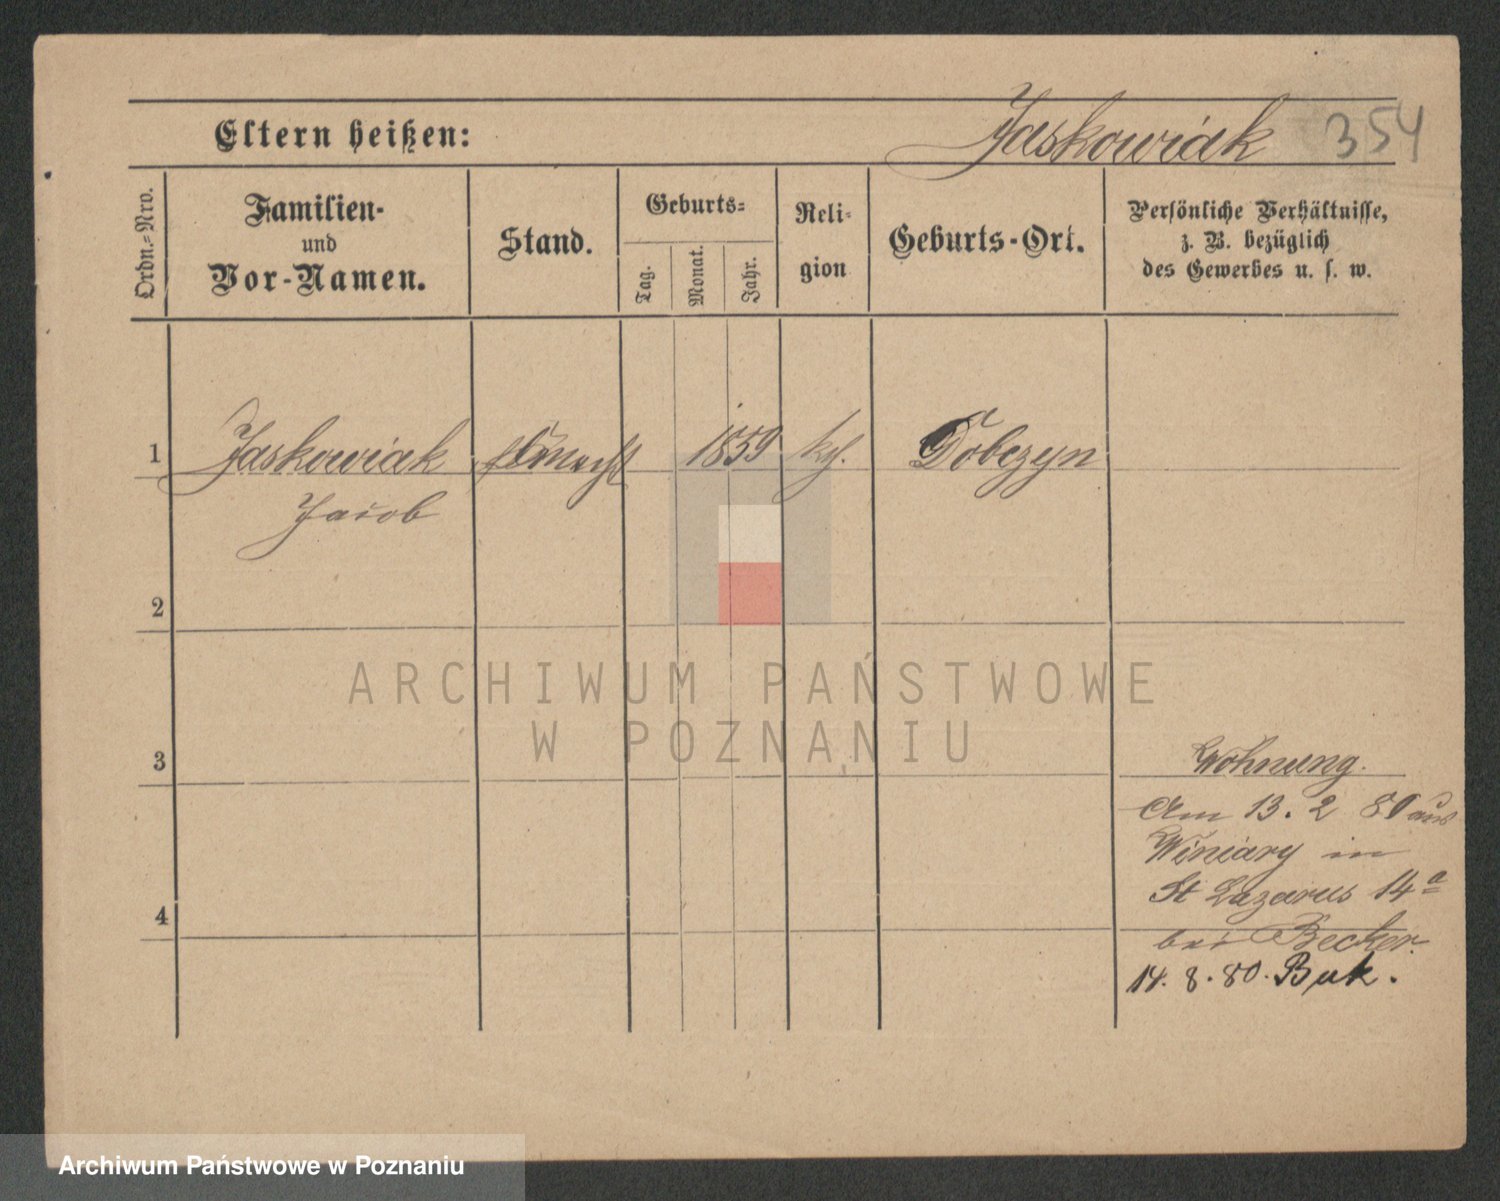 Jaskowiak 354
Eltern heißen:
Ordn.-Nro.
Familien-
und
Vor-Namen.
Stand.
Geburts-
Tag.
Monat.
Jahr.
Reli-
gion
Geburts-Ort.
Persönliche Verhältnisse,
z. B. bezüglich
des Gewerbes u. s. w.
1 Jaskowiak 1859 kth. Dobczyn
Jacob
2
3
4
Wohnung.
Am 13. 2 80 aus
Winiary in
St Lazarus 14a
bei Becker.
14. 8. 80. Buk.
ARCHIWUM PAŃSTWOWE
W POZNANIU
Archiwum Państwowe w Poznaniu